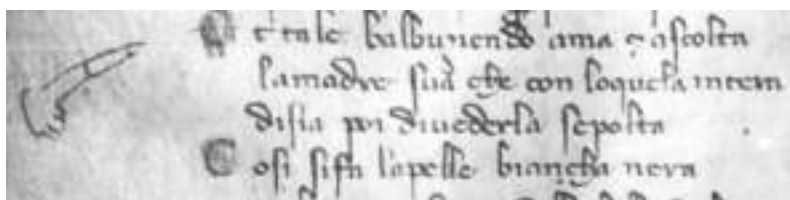 E tale balbutiendo ama ⁊ ascolta
lamadre sua che con loquela intera
disia poi diuederla sepolta
Cosi sifa lapelle biancha nera